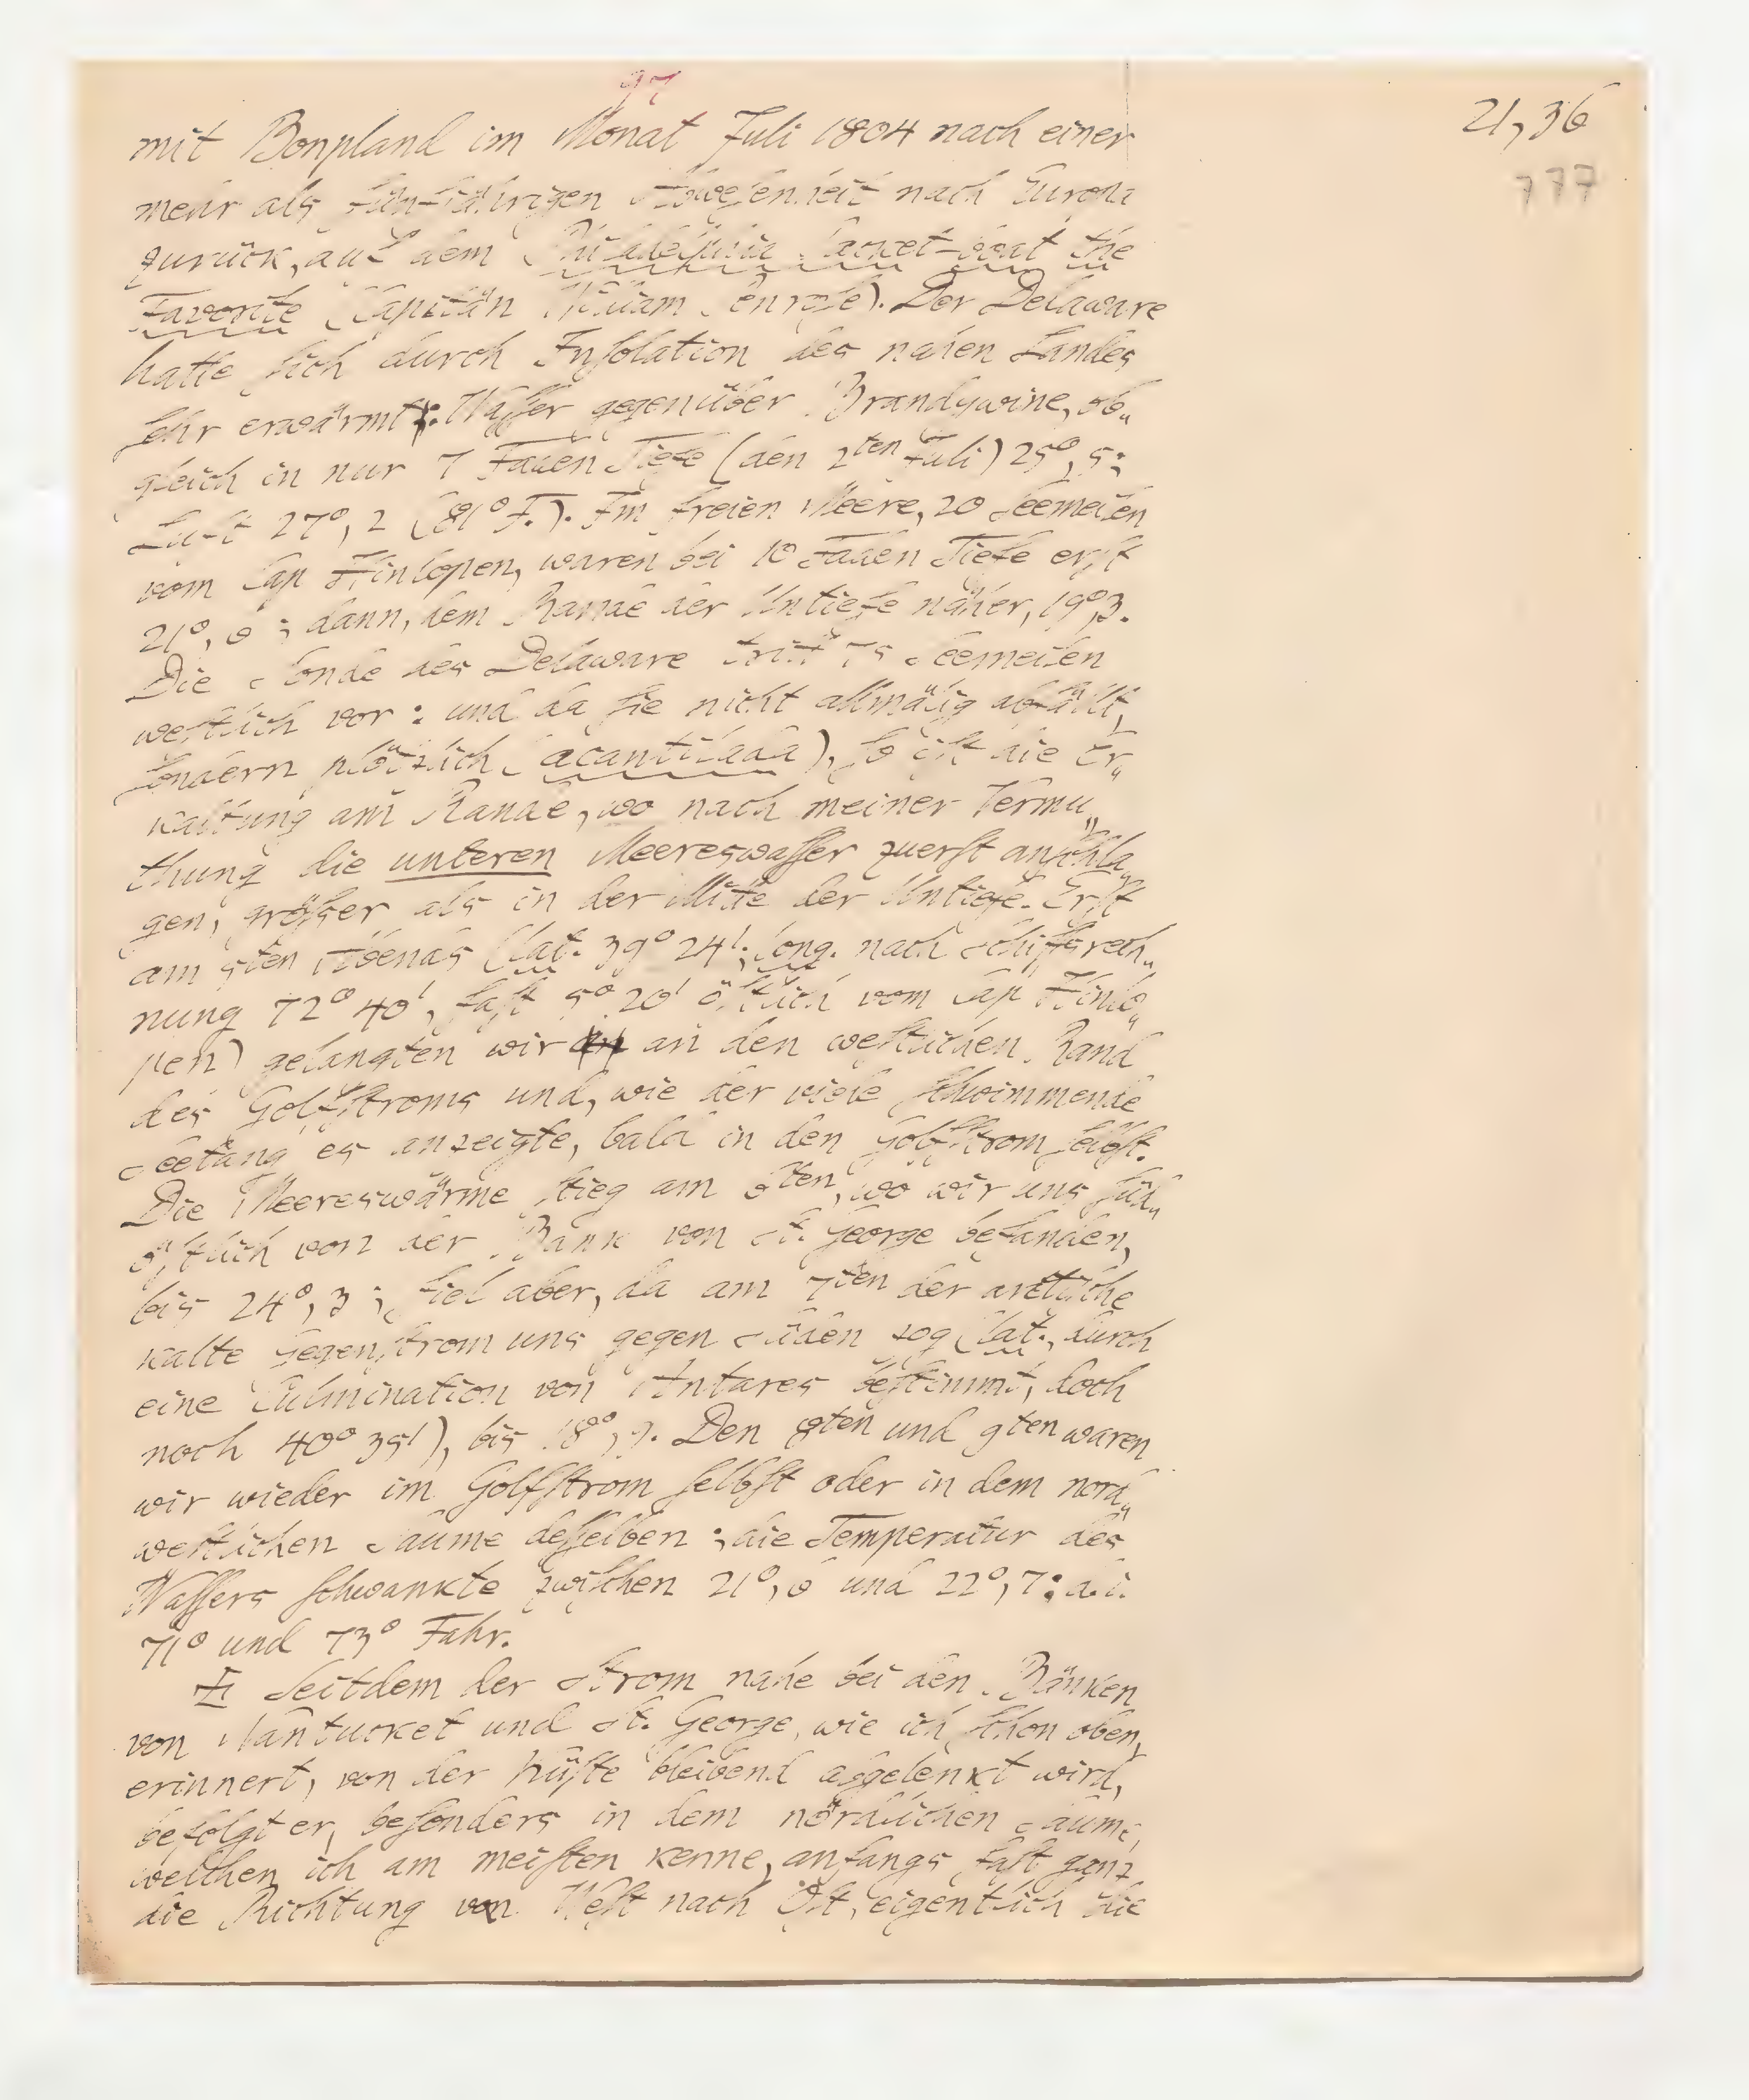 97
21,36
777
mit Bonpland im Monat Juli 1804 nach einer
mehr als fünfjährigen Abwesenheit nach Europa
zurück, auf dem Philadelphia Packet-boat the
Favorite (Capitän William ). Der Delaware
hatte sich durch Insolation des nahen Landes
sehr erwärmt: Wasser gegenüber Brandywine, ob„
gleich in nur 7 Faden Tiefe (den 2ten Juli) 25°, 5;
Luft 27°, 2 (81° F.). Im freien Meere, 20 Seemeilen
vom Cap Hinlopen, waren bei 10 Faden Tiefe erst
21°, 6; dann, dem Rande der Untiefe näher, 19°,3.
Die Sonde des Delaware tritt 75 Seemeilen
westlich vor: und da sie nicht allmälig abfällt,
sondern plötzlich (acantilada), so ist die Er„
kaltung am Rande, wo nach meiner Vermu„
thung die unteren Meereswasser zuerst anschla„
gen, größer als in der Mitte der Untiefe. Erst
am 5ten Abends (lat. 39° 24'; long. nach Schiffsrech„
nung 72° 40', fast 5° 20' östlich vom Cap Hinlo„
pen) gelangten wir an den westlichen Rand
des Golfstroms und, wie der viele schwimmende
Seetang es anzeigte, bald in den Golfstrom selbst.
Die Meereswärme stieg am 6ten, wo wir uns süd„
östlich von der Bank von St. George befanden,
bis 24°, 3; fiel aber, da am 7ten der arctische
kalte Gegenstrom uns gegen Süden zog (lat., durch
eine Culmination von Antares bestimmt, doch
noch 40° 35'), bis 18°, 9. Den 8ten und 9ten waren
wir wieder im Golfstrom selbst oder in dem nord„
westlichen Saume desselben; die Temperatur des
Wassers schwankte zwischen 21°, 6 und 22°, 7: d. i.
71° und 73° Fahr.
Seitdem der Strom nahe bei den Bänken
von Nantucket und St. George, wie ich schon oben
erinnert, von der Küste bleibend abgelenkt wird,
befolgt er, besonders in dem nördlichen Saume,
welchen ich am meisten kenne, anfangs fast ganz
die Richtung von West nach Ost, eigentlich die